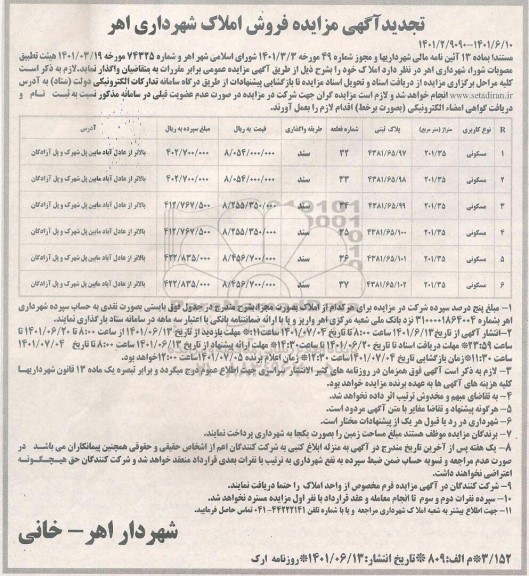 تجدیدآگهی مزایده فروش املاک شهرداری اهر
۱۴۰۱/۲/۹۰۹۰-۱۴۰۱/۶/۱۰
مستندا بماده ۱۳ آئین نامه مالی شهرداریها و مجوز شماره ۴۹ مورخه ۱۴۰۱/۳/۳ شورای اسلامی شهر اهر و شماره ۷۴۳۲۵ مورخه ۱۴۰۱/۰۳/۱۹ هیئت تطبیق
مصوبات شورا، شهرداری اهر در نظر دارد املاک خود را بشرح ذیل از طریق آگهی مزایده عمومی برابر مقررات به متقاضیان واگذار نماید.لازم به ذکر است
کلیه مراحل برگزاری مزایده از دریافت اسناد و تحویل اسناد مزایده تا بازگشایی پیشنهادات از طریق درگاه سامانه تدارکات الکترونیکی دولت (ستاد) به آدرس
www.setadiran.ir انجام خواهد شد و لازم است مزایده گران جهت شرکت در مزایده در صورت عدم عضویت قبلی در سامانه مذکور نسبت به ثبت نام و
دریافت گواهی امضاء الکترونیکی (بصورت برخط) اقدام لازم را بعمل آورند.
R نوع کاربری متراژ (متر مربع) پلاک ثبتی شماره قطعه طریقه واگذاری قیمت به ریال مبلغ سپرده به ریال آدرس
۱ مسکونی ۲۰۱/۳۵ ۴۳۸۱/۶۵/۹۷ ۳۲ سند ۸/۰۵۴/۰۰۰/۰۰۰ ۴۰۲/۷۰۰/۰۰۰ بالاتر از عادل آباد مابین پل شهرک و پل آزادگان
۲ مسکونی ۲۰۱/۳۵ ۴۳۸۱/۶۵/۹۸ ۳۳ سند ۸/۰۵۴/۰۰۰/۰۰۰ ۴۰۲/۷۰۰/۰۰۰ بالاتر از عادل آباد مابین پل شهرک و پل آزادگان
۳ مسکونی ۲۰۱/۳۵ ۴۳۸۱/۶۵/۹۹ ۳۴ سند ۸/۲۵۵/۳۵۰/۰۰۰ ۴۱۲/۷۶۷/۵۰۰ بالاتر از عادل آباد مابین پل شهرک و پل آزادگان
۴ مسکونی ۲۰۱/۳۵ ۴۳۸۱/۶۵/۱۰۰ ۳۵ سند ۸/۲۵۵/۳۵۰/۰۰۰ ۴۱۲/۷۶۷/۵۰۰ بالاتر از عادل آباد مابین پل شهرک و پل آزادگان
۵ مسکونی ۲۰۱/۳۵ ۴۳۸۱/۶۵/۱۰۱ ۳۶ سند ۸/۴۵۶/۷۰۰/۰۰۰ ۴۲۲/۸۳۵/۰۰۰ بالاتر از عادل آباد مابین پل شهرک و پل آزادگان
۶ مسکونی ۲۰۱/۳۵ ۴۳۸۱/۶۵/۱۰۲ ۳۷ سند ۸/۴۵۶/۷۰۰/۰۰۰ ۴۲۲/۸۳۵/۰۰۰ بالاتر از عادل آباد مابین پل شهرک و پل آزادگان
۱- مبلغ پنج درصد سپرده شرکت در مزایده برای هرکدام از املاک بصورت مجزا،بشرح مندرج در جدول فوق بایستی بصورت نقدی به حساب سپرده شهرداری
اهر بشماره ۳۱۰۰۰۰۱۸۶۴۰۰۴ نزد بانک ملی شعبه مرکزی اهر واریز و یا با ارائه ضمانتنامه بانکی با اعتبار سه ماهه در سامانه ستاد بارگذاری نمایند.
۲-انتشار آگهی از تاریخ۱۴۰۱/۶/۱۳ لغایت تاریخ ۱۴۰۱/۰۷/۰۴ تا ساعت۱۱:* مهلت بازدید از تاریخ ۱۴۰۱/۰۶/۱۳ از ساعت ۸:۰۰ تا ۱۴۰۱/۰۶/۲۰ تا
ساعت ۲۳:۵۹* مهلت دریافت اسناد تا تاریخ ۱۴۰۱/۰۶/۲۰ تا ساعت ۱۴:۳۰* مهلت ارائه پیشنهاد از تاریخ ۱۴۰۱/۰۶/۱۳ از ساعت ۸:۰۰ تا ۱۴۰۱/۰۷/۰۴
ساعت ۱۱:۳۰*زمان بازگشایی تاریخ ۱۴۰۱/۰۷/۰۴ ساعت ۱۲:۳۰* زمان اعلام برنده ۱۴۰۱/۰۷/۰۵ ساعت ۱۲:۰۰خواهد بود.
۳- لازم به ذکر است آگهی فوق همزمان در روزنامه های کثیر الانتشار سراسری جهت اطلاع عموم درج میگردد و برابر تبصره یک ماده ۱۳ قانون شهرداریها
کلیه هزینه های آگهی ها به عهده برنده مزایده خواهد بود.
۴- به تقاضای مبهم و مخدوش ترتیب اثر داده نخواهد شد.
۵- هرگونه پیشنهاد و تقاضا مغایر با متن آگهی مردود است.
۶- شهرداری در رد یا قبول هر یک از پیشنهادات مختار است.
۷- برندگان مزایده موظف هستند مبلغ مساحت زمین را بصورت یکجا به شهرداری پرداخت نمایند.
۸- یک هفته پس از آخرین تاریخ مندرج در آگهی به منزله ابلاغ کتبی به شرکت کنندگان اعم از اشخاص حقیقی و حقوقی همچنین پیمانکاران می باشد در
صورت عدم مراجعه و تسویه حساب ضمن ضبط سپرده به نفع شهرداری به ترتیب با نفرات بعدی قرارداد منعقد خواهد شد و شرکت کنندگان حق هیچگونه
اعتراضی نخواهند داشت.
۹- شرکت کنندگان در آگهی مزایده فرم مخصوص از واحد املاک را حتما دریافت نمایند.
۱۰- سپرده نفرات دوم و سوم تا انجام معامله و عقد قرارداد با نفر اول مزایده مسترد نخواهد شد.
۱۱- جهت اطلاع بیشتر به شعبه املاک شهرداری مراجعه و یا با شماره تلفن ۴۴۲۲۲۱۴۱-۰۴۱ تماس حاصل فرمایید.
شهردار اهر - خانی
۳/۱۵۲*م الف:۸۰۹ *تاریخ انتشار: ۱۴۰۱/۰۶/۱۳*روزنامه ارک